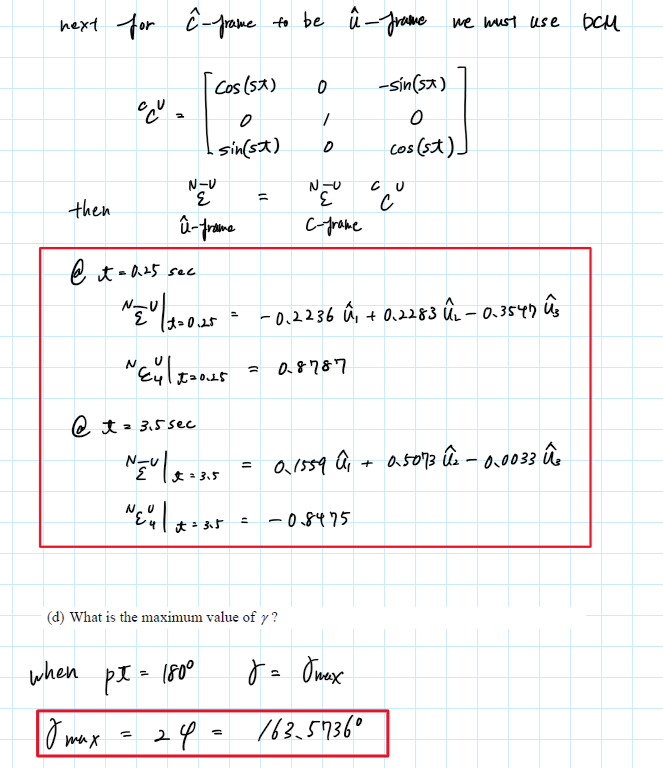 next for ĉ-frame to be û-frame we must use DCM
ᶜCᵁ = [ cos(st) 0 -sin(st)
0 1 0
sin(st) 0 cos(st) ]
then ᴺε̄ᵁ = ᴺε̄ᵁ ᶜCᵁ
û-frame C-frame
@ t = 0.25 sec
ᴺε̄ᵁ|t=0.25 = -0.2236 û₁ + 0.2283 û₂ - 0.3547 û₃
ᴺε₄ᵁ|t=0.25 = 0.8787
@ t = 3.5 sec
ᴺε̄ᵁ|t=3.5 = 0.1559 û₁ + 0.5073 û₂ - 0.0033 û₃
ᴺε₄ᵁ|t=3.5 = -0.8475
(d) What is the maximum value of γ?
when pt = 180° γ = γmax
γmax = 2φ = 163.5736°